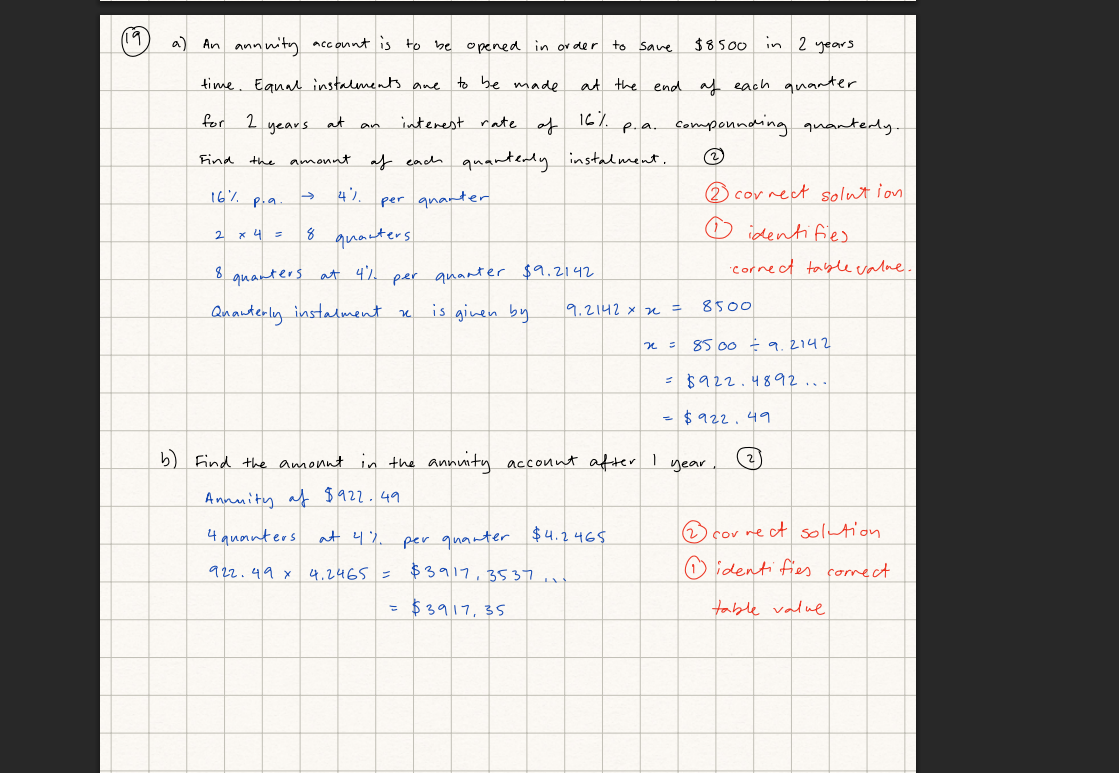 19 a) An annuity account is to be opened in order to save $8500 in 2 years
time. Equal instalments are to be made at the end of each quarter
for 2 years at an interest rate of 16% p.a. compounding quarterly.
Find the amount of each quarterly instalment. 2
16% p.a. → 4% per quarter
2 correct solution
2 × 4 = 8 quarters
1 identifies
correct table value.
8 quarters at 4% per quarter $9.2142
Quarterly instalment x is given by 9.2142 × x = 8500
x = 8500 ÷ 9.2142
= $922.4892...
= $922.49
b) Find the amount in the annuity account after 1 year. 2
Annuity of $922.49
4 quarters at 4% per quarter $4.2465
2 correct solution
922.49 × 4.2465 = $3917.3537...
1 identifies correct
table value
= $3917.35